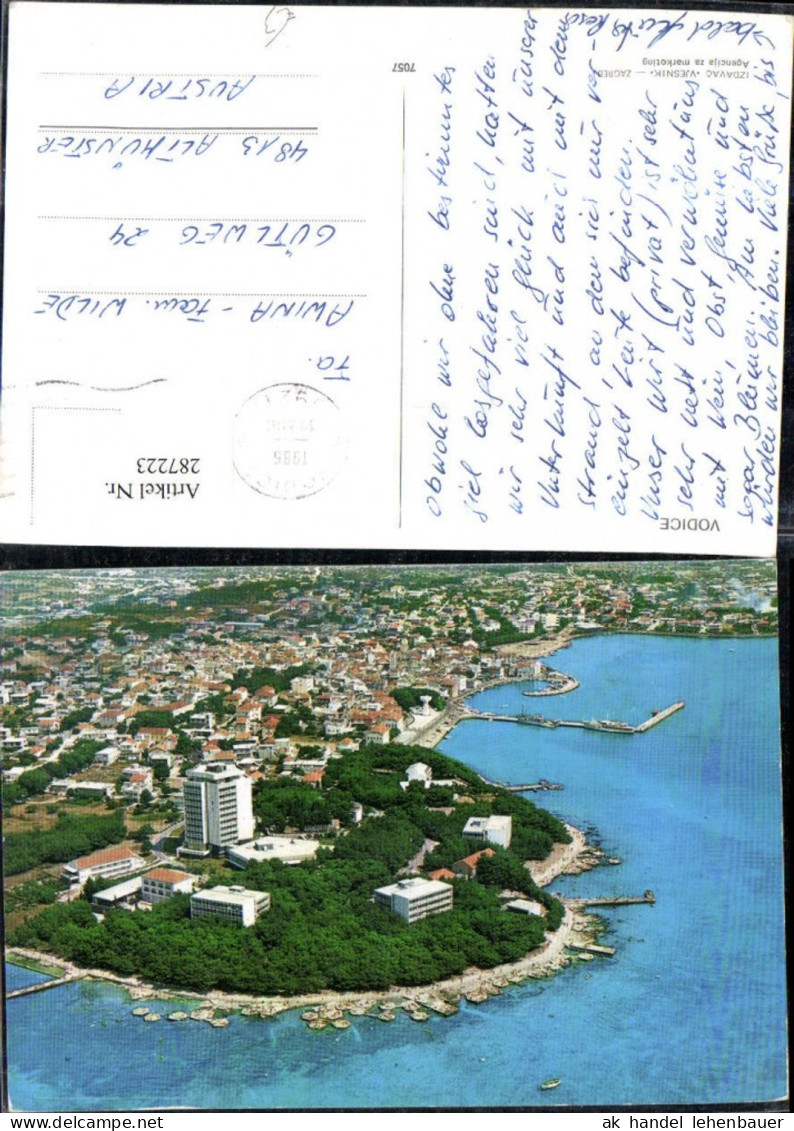 VODICE
obwohl wir ohne bestimmtes
Ziel losgefahren sind, hatten
wir sehr viel Glück mit unserer
Unterkunft und auch mit dem
Strand, an dem sich nur ver-
einzelt Leute befinden.
Unser Wirt (privat) ist sehr
sehr nett und verwöhnt uns
mit Wein, Obst, Gemüse und
sogar Blumen. Am liebsten
würden wir bleiben. Viele Grüße, bis
bald
IZDAVAČ »VJESNIK« — ZAGREB
Agencija za marketing
7057
Artikel Nr.
287223
1986
Fa.
AWINA - Fam. WILDE
GÜTLWEG 24
4813 ALTMÜNSTER
AUSTRIA
ak handel lehenbauer